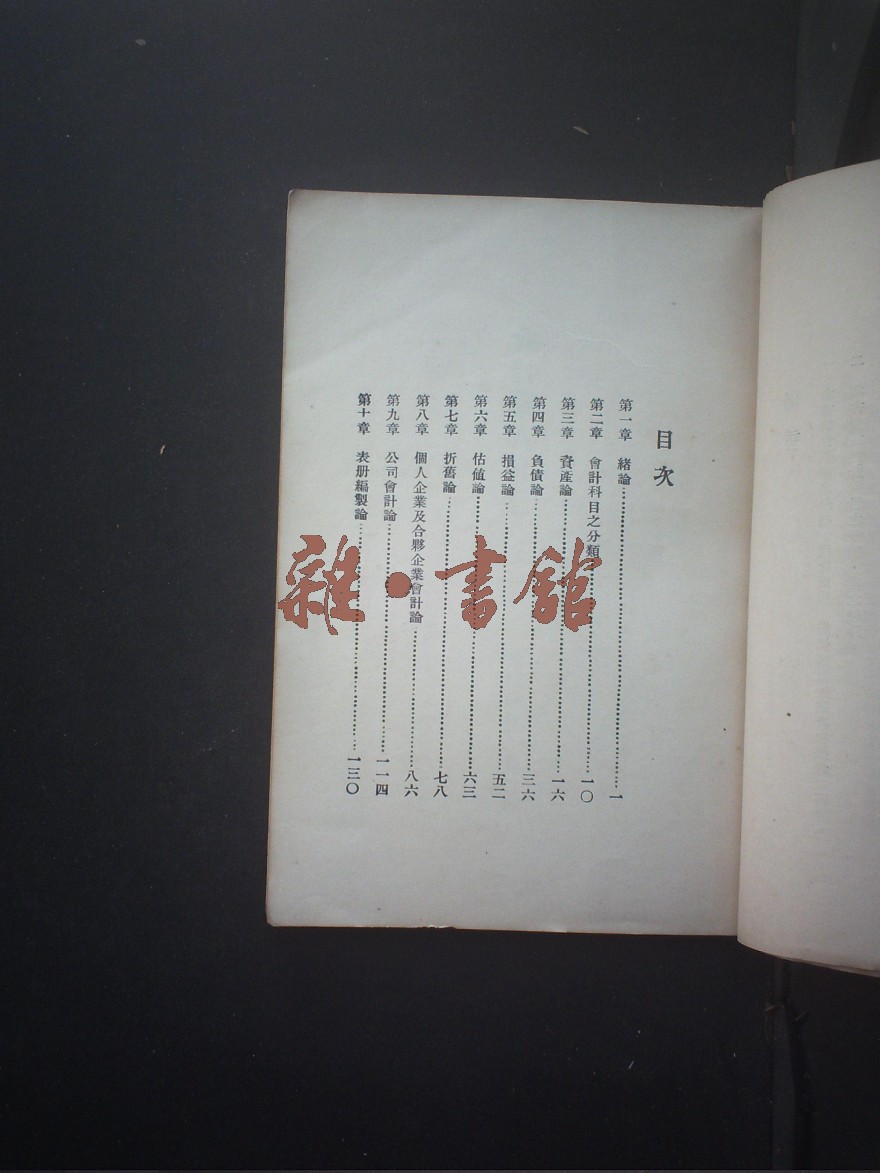 目次
第一章 緒論……一
第二章 會計科目之分類……一〇
第三章 資產論……一六
第四章 負債論……三六
第五章 損益論……五二
第六章 估値論……六三
第七章 折舊論……七八
第八章 個人企業及合夥企業會計論……八六
第九章 公司會計論……一一四
第十章 表册編製論……一三〇
雜·書館